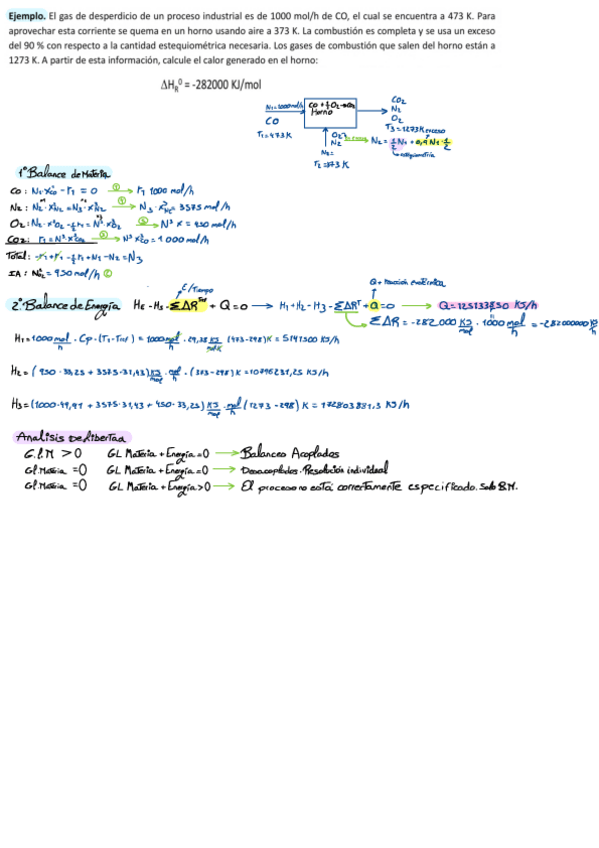 Ejemplo. El gas de desperdicio de un proceso industrial es de 1000 mol/h de CO, el cual se encuentra a 473 K. Para
aprovechar esta corriente se quema en un horno usando aire a 373 K. La combustión es completa y se usa un exceso
del 90 % con respecto a la cantidad estequiométrica necesaria. Los gases de combustión que salen del horno están a
1273 K. A partir de esta información, calcule el calor generado en el horno:
ΔH_R⁰ = -282000 KJ/mol
N₁=1000mol/h
CO
T₁=473K
CO + ½O₂→CO₂
Horno
CO₂
N₂
O₂
T₃=1273K
O₂
N₂
N₂=
T₂=373K
exceso
N₂ = ½N₁ + 0,9 N₁·½
estequiometría
1º Balance de Materia
r₁ 1000 mol/h
N₃·x = 3575 mol/h
N³x = 450 mol/h
N³x = 1000 mol/h
Total: -r₁+r₁-½r₁+N₁-N₂=N₃
= 950 mol/h
E/Tiempo
Q + reacción exotérmica
2º Balance de Energía H_E - H_S - ΣΔR + Q = 0 → H₁+H₂-H₃-ΣΔR+Q=0 → KJ/h
ΣΔR = -282000 KJ/mol · 1000 mol/h = -282000000 KJ/h
H₁=1000 mol/h · Cp·(T₁-Tref) = 1000 mol/h · 29,38 (473-298)K = 5141500 KJ/h
H₂=(950·33,23 + 3575·31,43) KJ/mol · mol/h · (373-298)K = 10796231,25 KJ/h
H₃=(1000·49,91 + 3575·31,43 + 450·33,25) KJ/mol · mol/h (1273-298)K = 172803881,3 KJ/h
Analisis De libertad
G.L.M > 0 GL Materia + Energía=0 → Balances Acoplados
Gl. Materia =0 GL Materia + Energía=0 → Desacoplados. Resolución individual
Gl. Materia =0 GL Materia + Energía>0 → El proceso no está correctamente especificado. Solo BM.